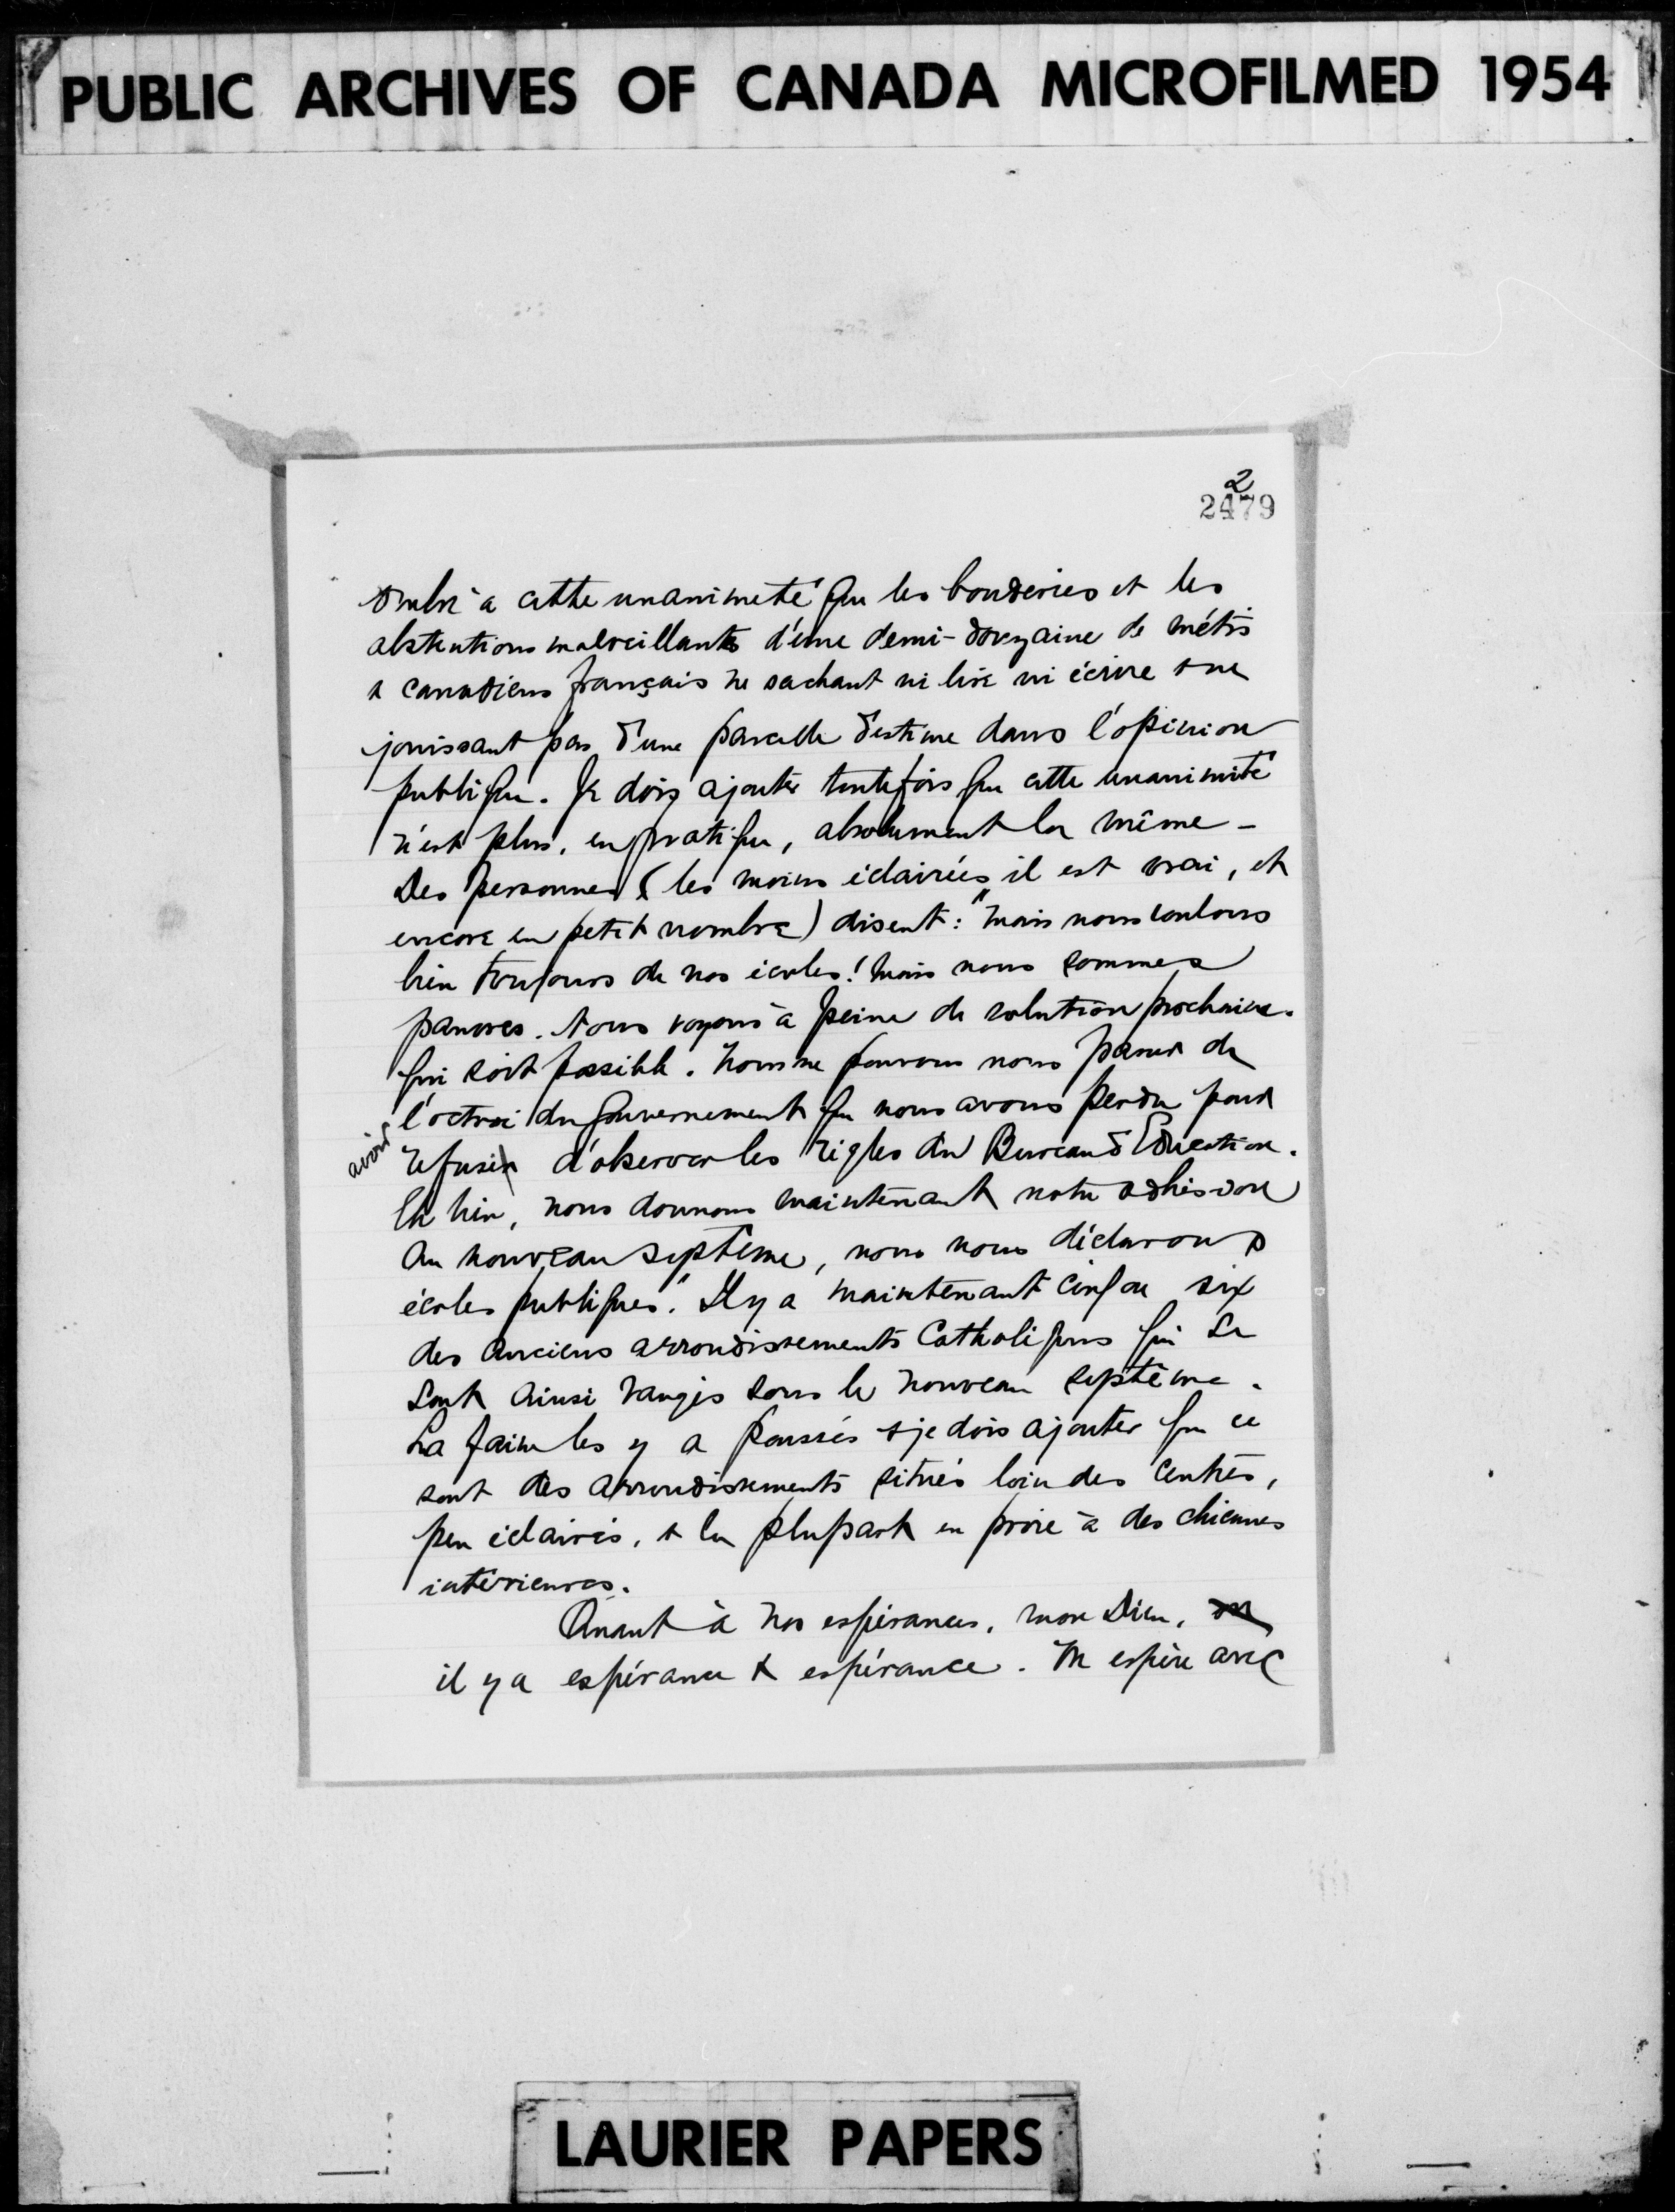 PUBLIC ARCHIVES OF CANADA MICROFILMED 1954
2
2479
ombre à cette unanimité que les bouderies et les
abstentions malveillantes d'une demi-douzaine de métis
& canadiens français ne sachant ni lire ni écrire & ne
jouissant pas d'une parcelle d'estime dans l'opinion
publique. Je dois ajouter toutefois que cette unanimité
n'est plus, en pratique, absolument la même -
Des personnes (les moins éclairées il est vrai, et
encore en petit nombre) disent: "mais nous voulons
bien toujours de nos écoles! mais nous sommes
pauvres. Nous voyons à peine de solution prochaine
qui soit possible. Nous ne pouvons nous passer de
l'octroi du gouvernement que nous avons perdu pour
avoir refusé d'observer les règles du Bureau d'Education.
Eh bien, nous donnons maintenant notre adhésion
au nouveau système, nous nous déclarons
écoles publiques". Il y a maintenant cinq ou six
des anciens arrondissements Catholiques qui se
sont ainsi rangés sous le nouveau système.
La faim les y a poussés & je dois ajouter que ce
sont des arrondissements situés loin des centres,
peu éclairés, & la plupart en proie à des chicanes
intérieures.
Quant à nos espérances, mon Dieu, on
il y a espérance & espérance. On espère avec
LAURIER PAPERS